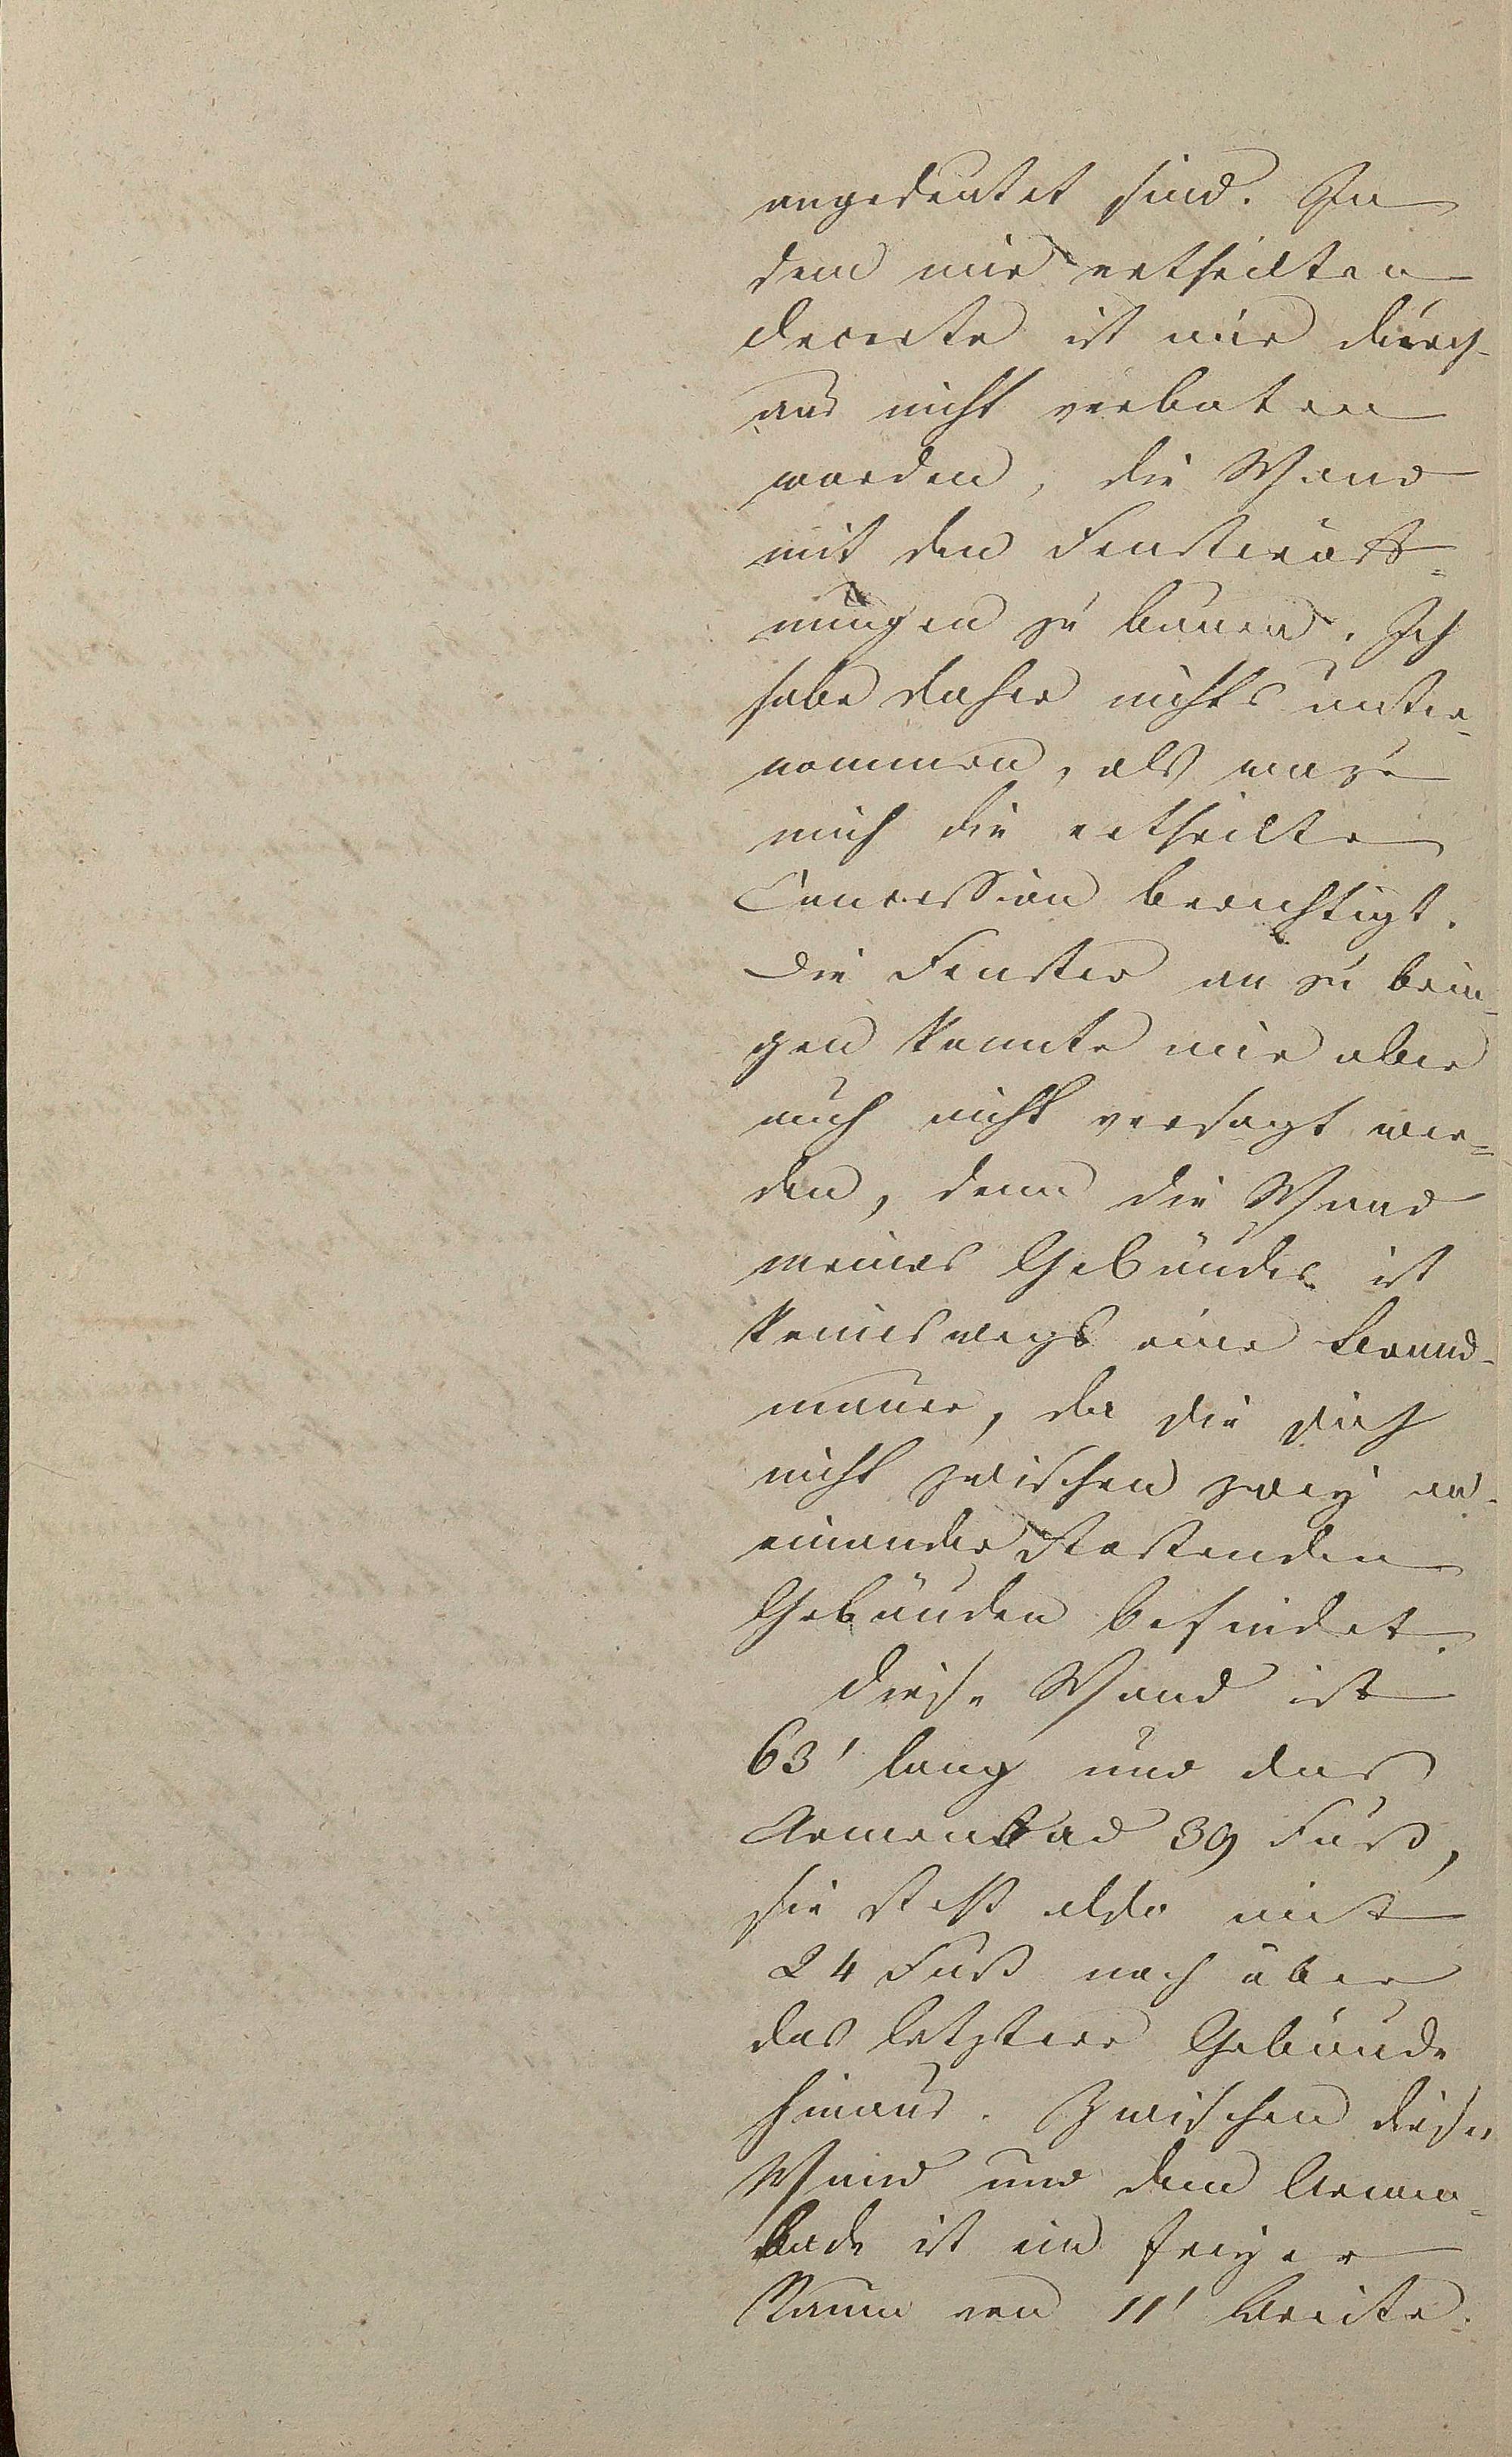 angedeutet sind. In
dem mir ertheilten
Decrete ist mir durch-
aus nicht verboten
worden, die Wand
mit den Fensteröff=
nungen zu bauen. Ich
habe daher nichts unter-
nommen, als wozu
mich die ertheilte
Concession berechtigt.
Die Fenster an zu brin-
gen konnte mir aber
auch nicht versagt wer=
den, denn die Wand
meines Gebäudes ist
keineswegs eine Brand-
mauer, da sie sich
nicht zwischen zwey an-
einander stoßenden
Gebäuden befindet.
Diese Wand ist
63' lang und das
Armenbad 39 Fuß,
sie steht also mit
24 Fuß noch über
das letztere Gebäude
hinaus. Zwischen dieser
Wand und dem Armen-
bade ist ein freyer
Raum von 11' Breite.